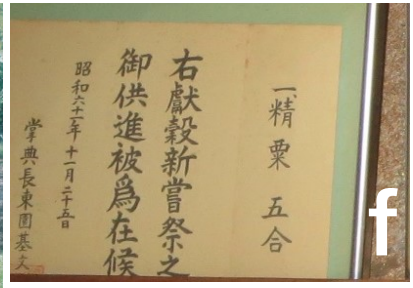 一精粟 五合
右献穀新嘗祭之
御供進被爲在候
昭和六十一年十一月二十五日
掌典長東園基文
f